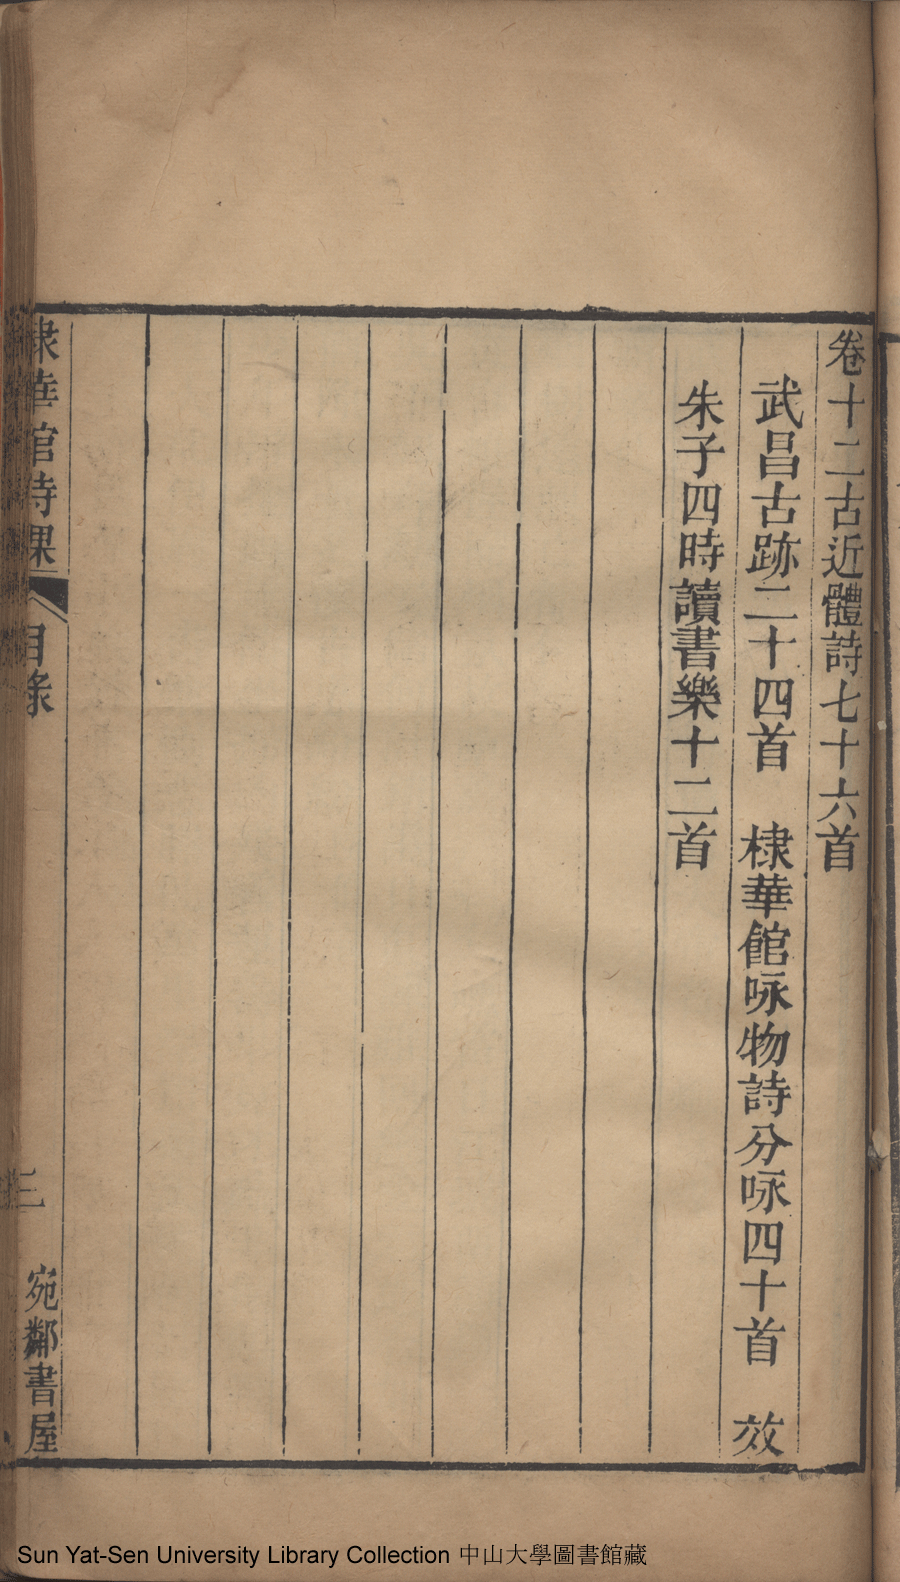 卷十二古近體詩七十六首
武昌古跡二十四首　棣華館咏物詩分咏四十首　效
朱子四時讀書樂十二首
棣華館詩課　目錄　三　宛鄰書屋
Sun Yat-Sen University Library Collection 中山大學圖書館藏